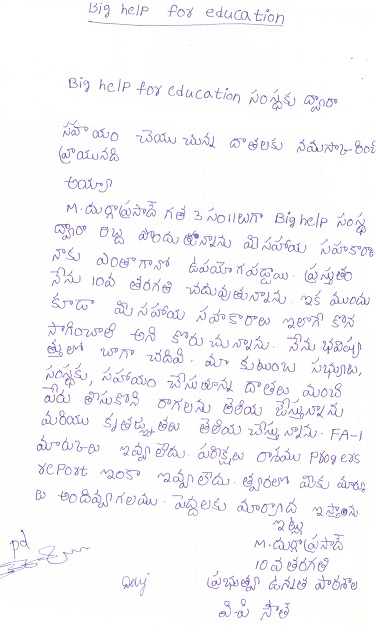 Big help for education
Big help for education సంస్థకు ద్వారా
సహాయం చేయుచున్న దాతలకు నమస్కరించి
వ్రాయునది
అయ్యా
M. దుర్గాప్రసాద్ గత 3 సం॥లుగా Big help సంస్థ
ద్వారా లబ్ధి పొందుతున్నాను మీ సహాయ సహకారా
నాకు ఎంతాగానో ఉపయోగపడ్డాయి. ప్రస్తుతం
నేను 10వ తరగతి చదువుతున్నాను. ఇక ముందు
కూడా మీ సహాయ సహకారాలు ఇలాగే కొన
సాగించాలి అని కోరుచున్నాను. నేను భవిష్య
త్తులో బాగా చదివి. మా కుటుంబ సభ్యులు,
సంస్థకు, సహాయం చేసుతూన్న దాతలు మంచి
పేరు తీసుకొని రాగలను తెలియ జేస్తున్నాను
మరియు కృతజ్ఞతలు తెలియ చేస్తున్నాను. FA-1
మార్కులు ఇవ్వలేదు. పరీక్షలు రాసాము Progress
report ఇంకా ఇవ్వలేదు. త్వరలో మీకు మార్కు
లు అందివ్వగలము. పెద్దలకు మార్యాద ఇస్తాను
ఇట్లు
M. దుర్గాప్రసాద్
10వ తరగతి
ప్రభుత్వ ఉన్నత పాఠశాల
వి-పి సౌత్
pd